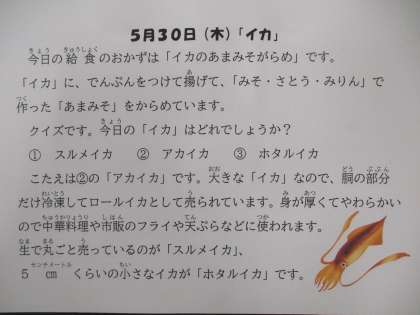 5月30日（木）「イカ」
今日の給食のおかずは「イカのあまみそがらめ」です。
「イカ」に、でんぷんをつけて揚げて、「みそ・さとう・みりん」で
作った「あまみそ」をからめています。
クイズです。今日の「イカ」はどれでしょうか？
① スルメイカ ② アカイカ ③ ホタルイカ
こたえは②の「アカイカ」です。大きな「イカ」なので、胴の部分
だけ冷凍してロールイカとして売られています。身が厚くてやわらかい
ので中華料理や市販のフライや天ぷらなどに使われます。
生で丸ごと売っているのが「スルメイカ」、
5㎝くらいの小さなイカが「ホタルイカ」です。